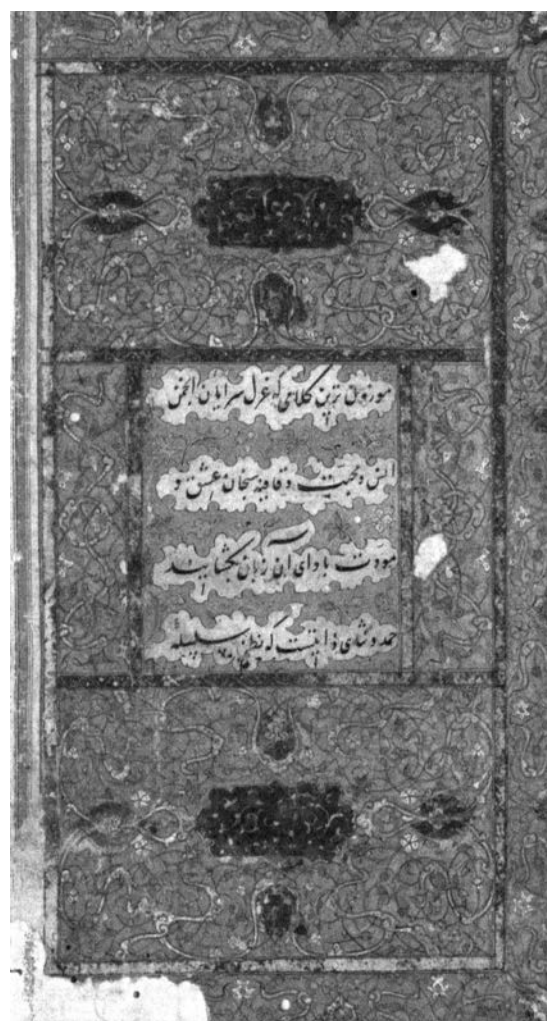 موزون ترین کلامی که غزل سرایان انجمن
انس و محبت و قافیه سنجان عشق و
مودت بادای آن زبان بگشایند
حمد و ثنای ذاتیست که بنظم سلسله